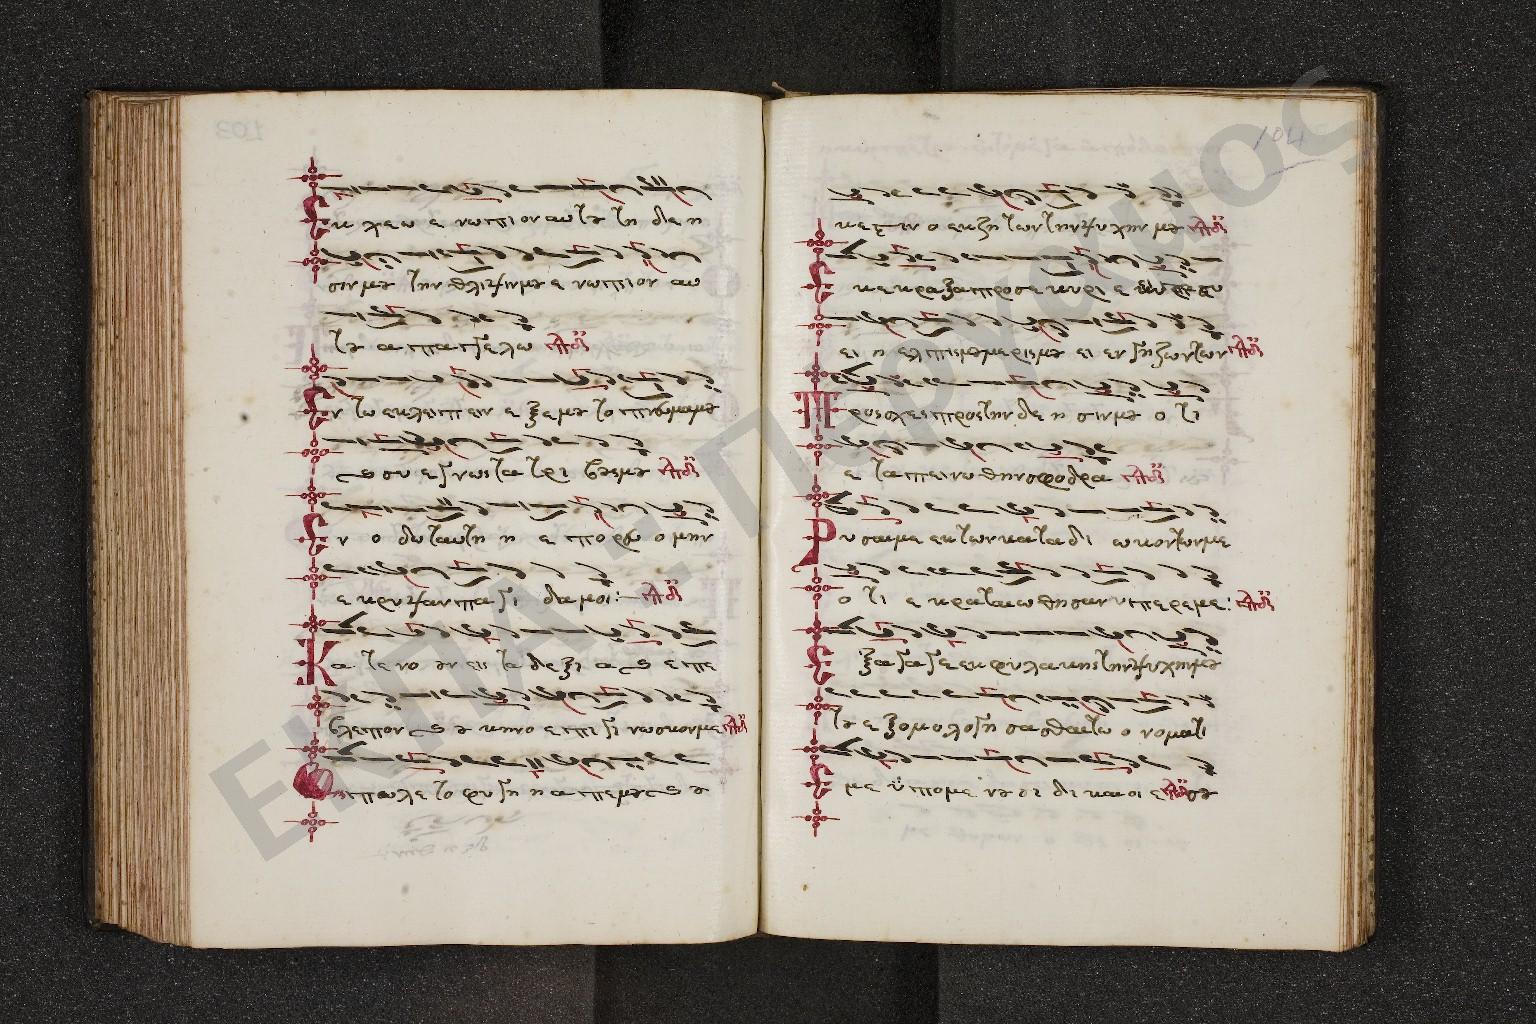 103
Εκ χε ω ε νωπι ον αυ του τη δε η
σιν μου την θλιψιν μου ε νωπι ον αυ
του α πα γγε λω
Εν τω εκ λει πειν ε ξε μου το πνευμα μου
και συ ε γνως τας τρι βους μου
Εν ο δω ταυ τη η ε πο ρευ ο μην
ε κρυ ψαν πα γι δα μοι:
Κα τε νο ουν εις τα δε ξι α και ε πε
βλε πον και ου κην ο ε πι γι νω σκον με
πω λε το φυ γη η α π ε μου και ου
104
κ ε στιν ο εκ ζη των την ψυ χην μου
Ε κε κρα ξα προς σε κυ ρι ε
ει η ελ πις μου με ρις μου ει εν γη ζων των
Προς σχες προς την δε η σιν μου ο τι
ε τα πει νω θην σφο δρα
Ρυ σαι με εκ των κα τα δι ω κον των με
ο τι ε κρα ται ω θη σαν υ περ ε με:
Ε ξα γα γε εκ φυ λα κης την ψυ χην μου
του ε ξο μο λο γη σα σθαι τω ο νο μα τι
Ε με υ πο με νου σι δι και οι ε σου
ΕΚΠΑ: Πέργαμος